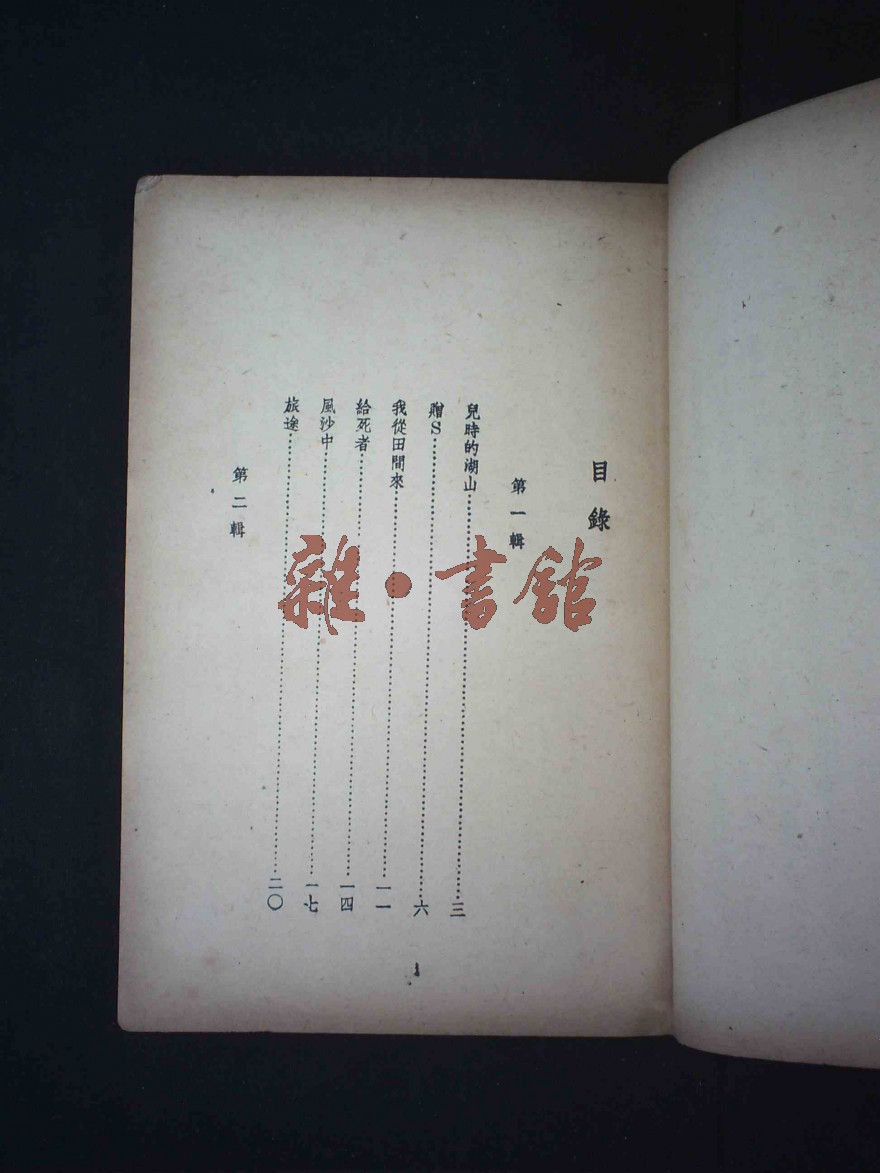 目錄
第一輯
兒時的湖山……三
贈S……六
我從田間來……一一
給死者……一四
風沙中……一七
旅途……二〇
第二輯
1
雜·書館